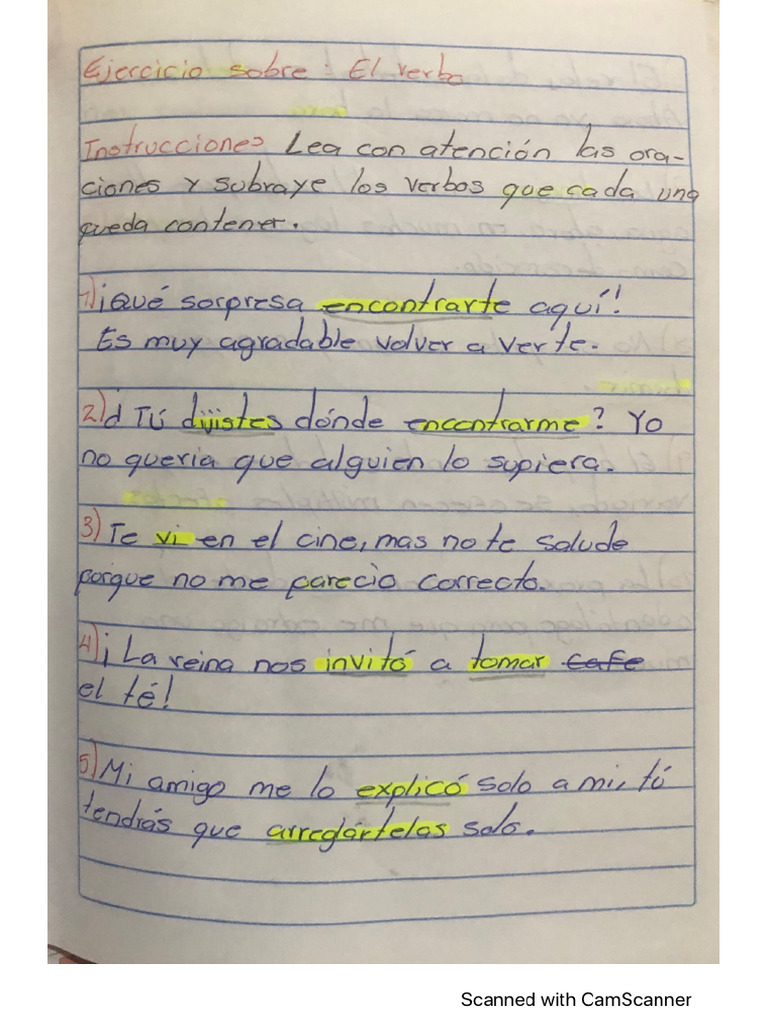 Ejercicio sobre: El verbo
Instrucciones Lea con atención las ora-
ciones y subraye los verbos que cada una
pueda contener.
1) ¡Qué sorpresa encontrarte aquí!
Es muy agradable volver a verte.
2) ¿Tú dijistes dónde encontrarme? Yo
no queria que alguien lo supiera.
3) Te vi en el cine, mas no te salude
porque no me parecio correcto.
4) ¡La reina nos invitó a tomar cafe
el té!
5) Mi amigo me lo explicó solo a mi, tú
tendrás que arreglártelas solo.
Scanned with CamScanner